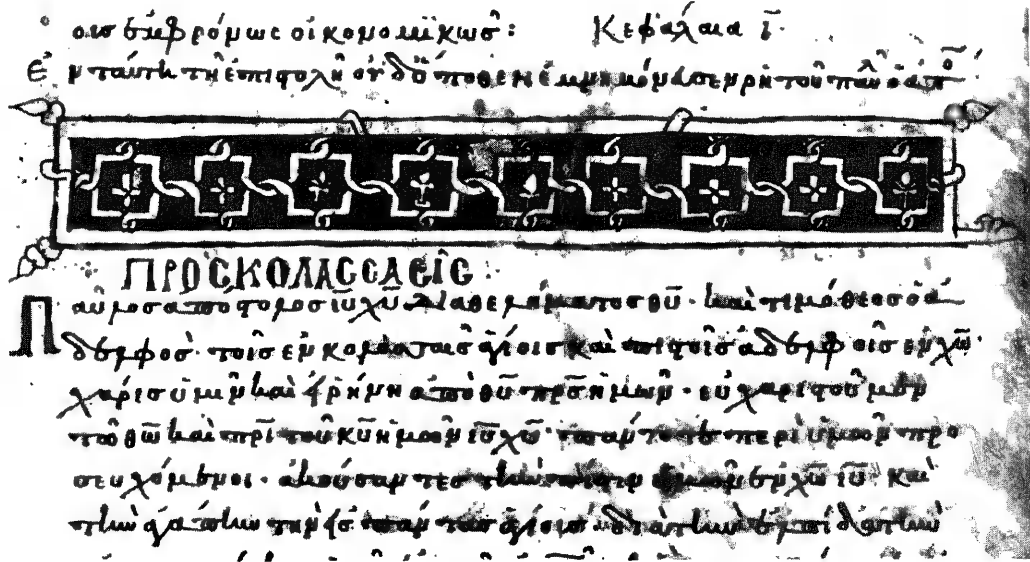 οις ἐμφρόνως οἰκονομϊκῶς: Κεφάλαια ῑ·
Ἐν ταύτη τῆ ἐπιστολῆ
ΠΡΟC ΚΟΛΑCCΑΕΙC
Παῦλος ἀπόστολος ῑῡ χ̄ῡ διὰ θελήματος θ̄ῡ· καὶ τιμόθεος ὁ ἀ
δελφὸς· τοῖς ἐν κολασσαῖς ἁγίοις καὶ πιστοῖς ἀδελφοῖς ἐν χ̄ω̄·
χάρις ὑμῖν καὶ εἰρήνη ἀπὸ θ̄ῡ π̄ρ̄ς̄ ἡμῶν· εὐχαριστοῦμεν
τῶ θ̄ω̄ καὶ π̄ρ̄ῑ τοῦ κ̄ῡ ἡμῶν ῑῡ χ̄ῡ· πάντοτε περὶ ὑμῶν προ
σευχόμενοι· ἀκούσαντες τὴν πίστιν ὑμῶν ἐν χ̄ω̄ ῑῡ· καὶ
τὴν ἀγάπην τὴν εἰς πάντας ἁγίους διὰ τὴν ἐλπίδα τὴν